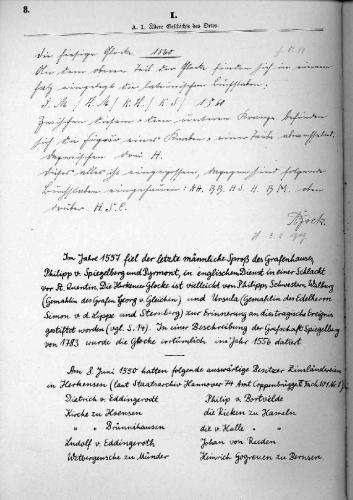 8.
I.
A. I. Ältere Geschichte des Ortes.
die hiesige Glocke 1560
An dem oberen Teil der Glocke finden sich in einem
eingelegt die lateinischen Buchstaben.
1560
Zwischen diesem u. dem unteren Kranze befinden
sich die Figur eines Knaben u. einer Taube abwechselnd.
dazwischen drei H.
dieses alles ist eingegossen, dagegen sind folgende
Buchstaben eingehauen: HH. BB. H S. H. B M. oben
drüber H. S. C.
Im Jahre 1557 fiel der letzte männliche Sproß des Grafenhauses,
Philipp v. Spiegelberg und Pyrmont, in englischen Dienst in einer Schlacht
vor St. Quentin. Die Herkenser Glocke ist vielleicht von Philipps Schwestern Walburg
(Gemahlin des Grafen Georg v. Gleichen) und Ursula (Gemahlin des Edelherrn
Simon v. d. Lippe und Sternberg) zur Erinnerung an das tragische Ereignis
gestiftet worden (vgl. S. 14). In einer Beschreibung der Grafschaft Spiegelberg
von 1783 wurde die Glocke irrtümlich ins Jahr 1556 datiert
Am 8. Juni 1550 hatten folgende auswärtige Besitzer Zinsländereien
in Herkensen (laut Staatsarchiv Hannover 74 Amt Coppenbrügge II Fach 101 Nr. 1)
Dietrich v. Eddingerodt Philip v. Bortvelde
Kirche zu Hoensen die Ricken zu Hameln
" " Brünnihausen die v. Halle "
Ludolf v. Eddingeroth Johan von Reden
Wetbergensche zu Münder Heinrich Gogreuen zu Bernsen.